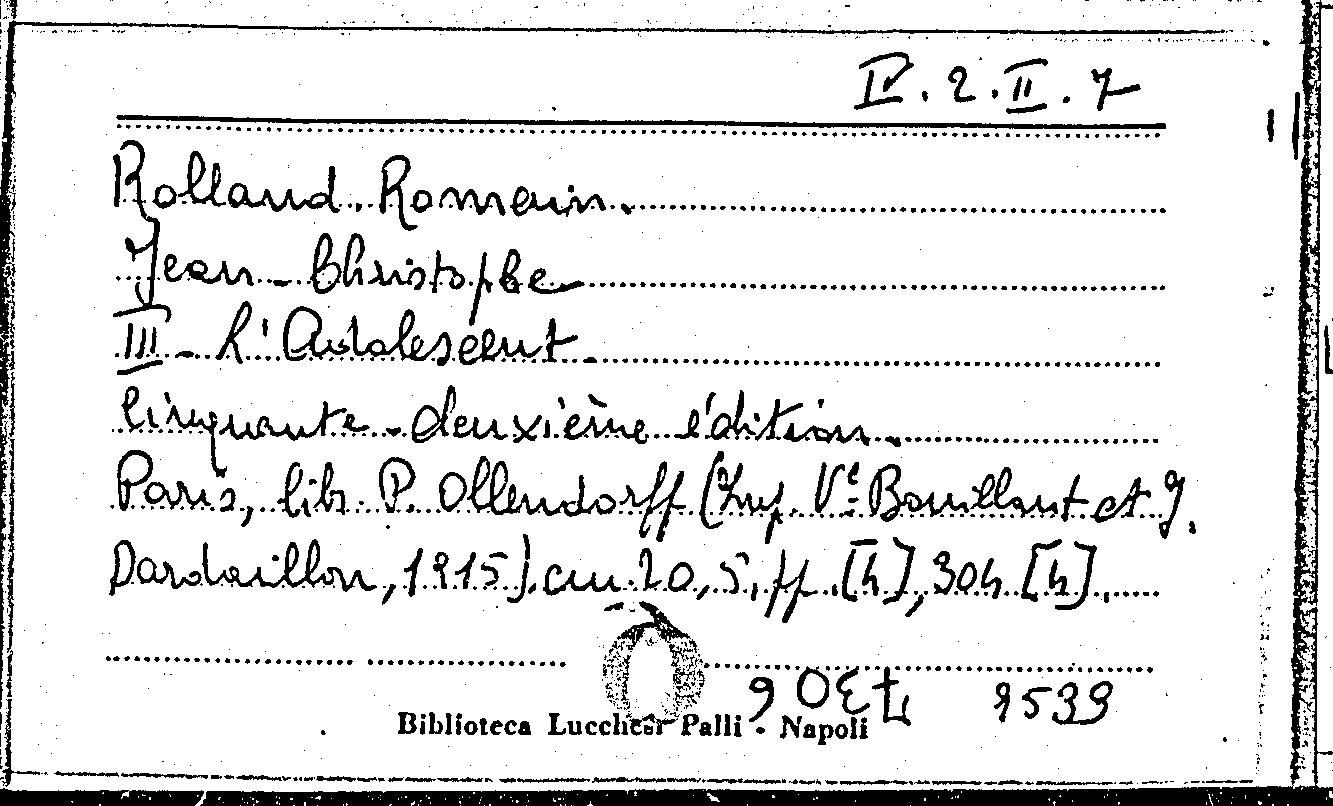 IV. 2. II. 7
Rolland. Romain.
Jean - Christophe
III - L'Adolescent -
Cinquante - deuxième édition.
Paris, lib. P. Ollendorff (Imp. Vᵉ Bouillant et J.
Dardaillon, 1915). cm. 20,5, pp. [4], 304 [4].
9539
Biblioteca Lucchesi Palli - Napoli